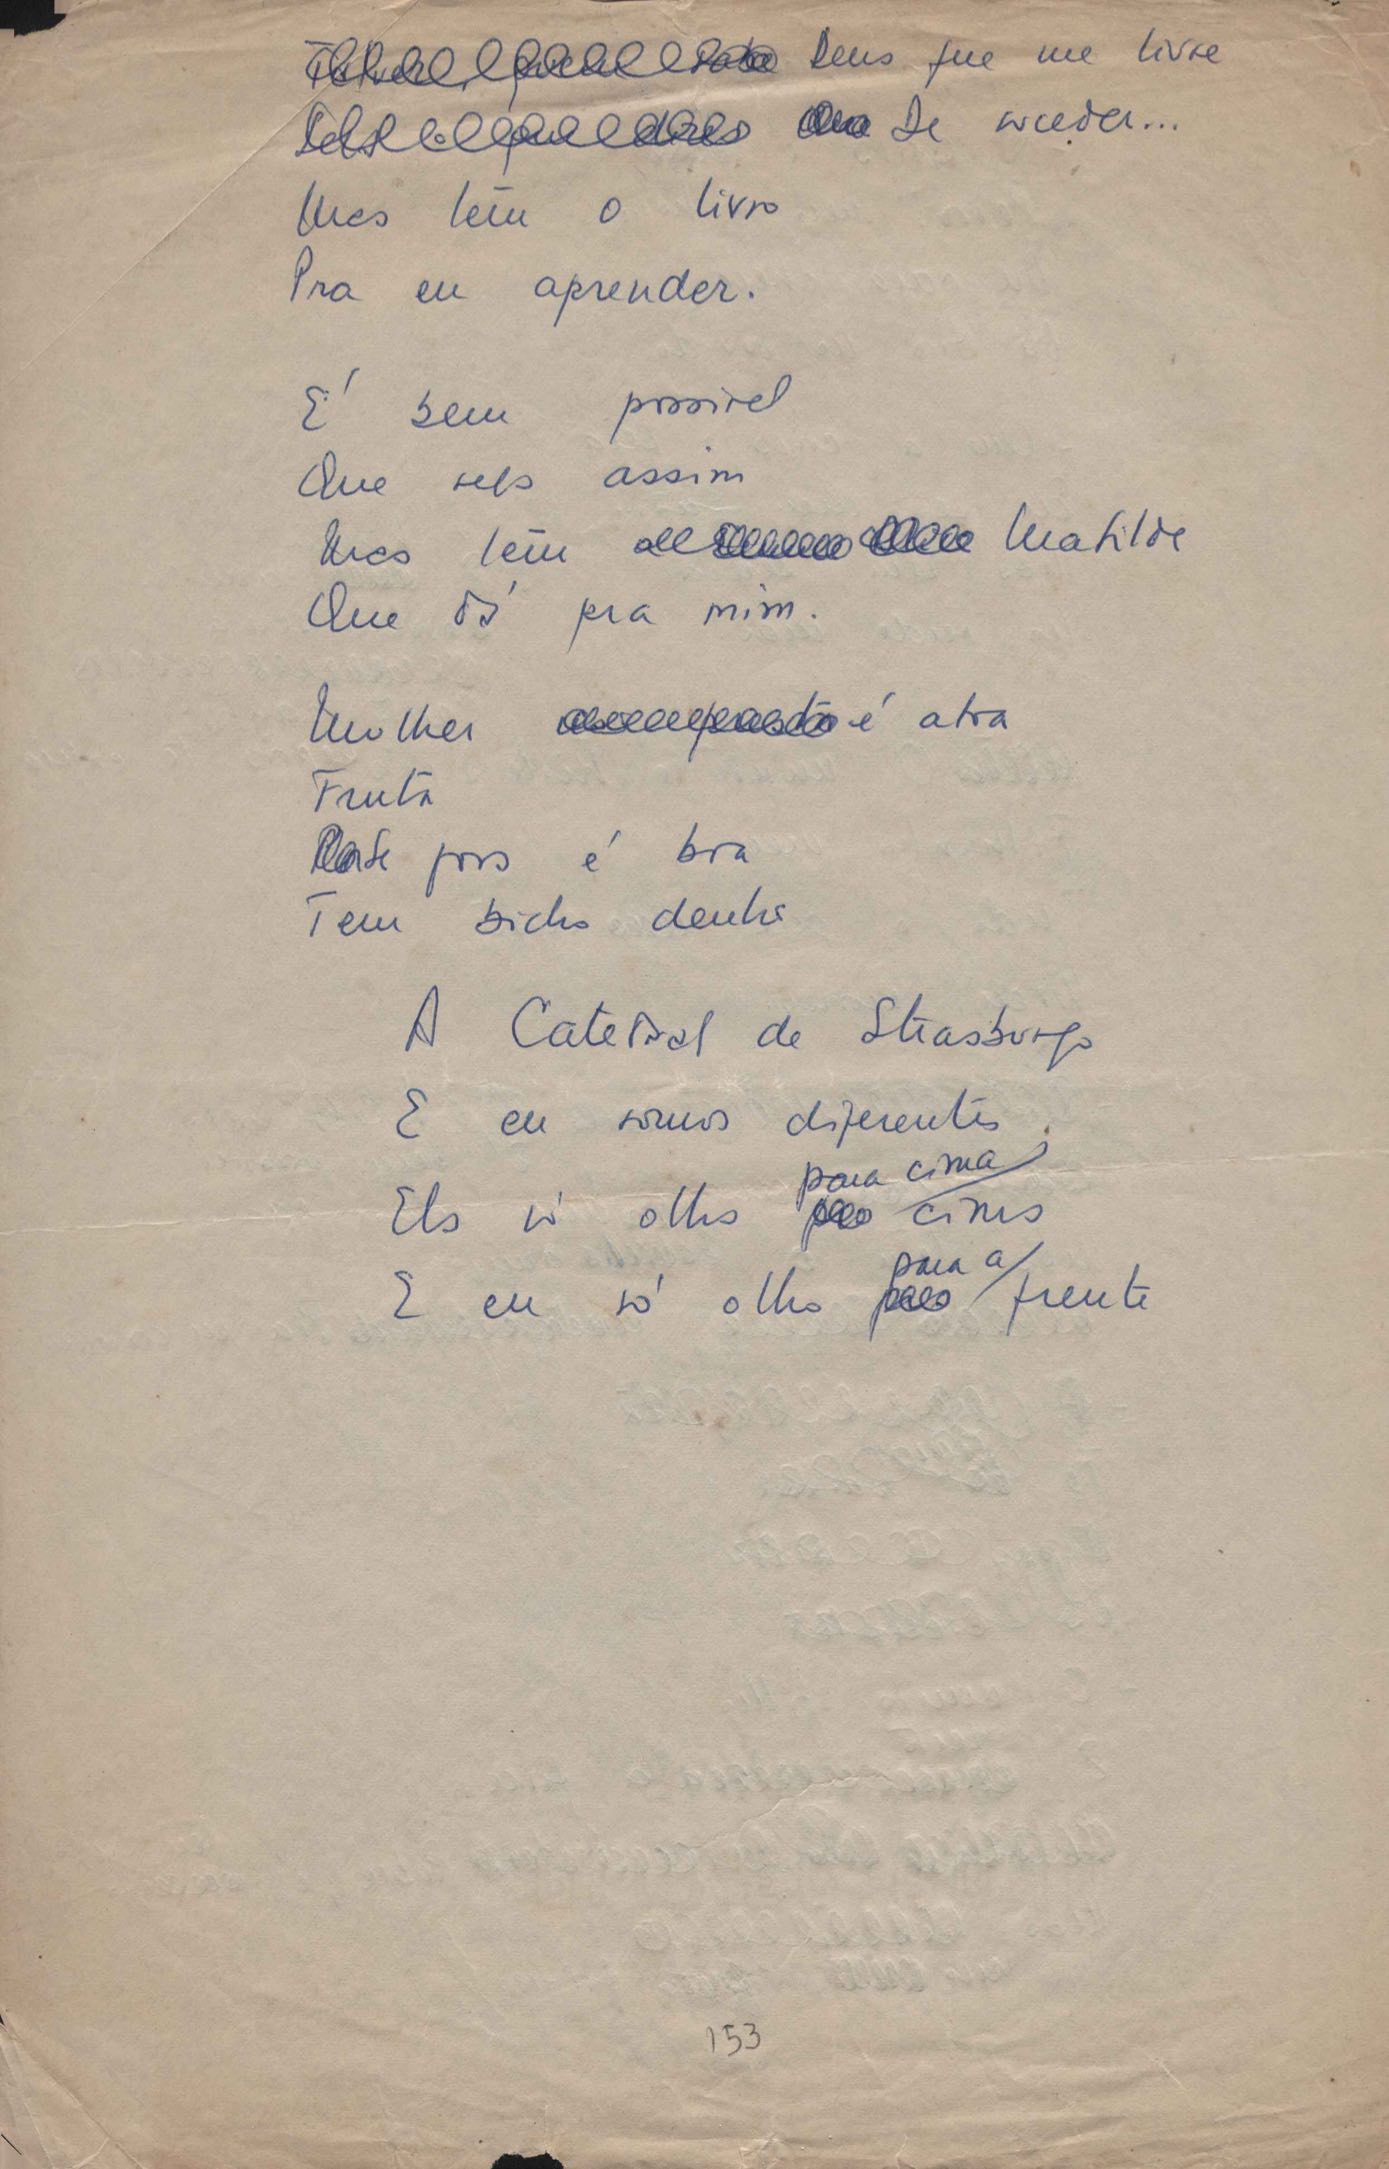 Deus que me livre
De suceder...
Mas têm o livro
Pra eu aprender.
É bem possivel
Que seja assim
Mas têm a Matilde
Que dá pra mim.
Mulher é atôa
Fruta
Se pois é boa
Tem bicho dentro
A Catedral de Strasburgo
E eu somos diferentes.
para cima
Ela só olha cima
para a
E eu só olho frente
153